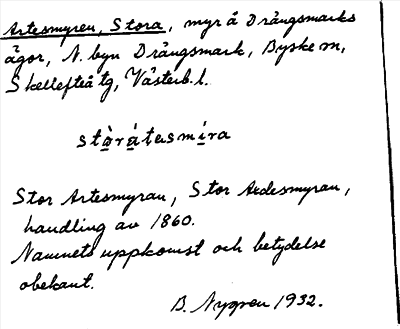 Artesmyren, Stora, myr å Drångsmarks
ägor, N. byn Drångsmark, Byske sn,
Skellefteå tg, Västerb. l.
stàrátesmíra
Stor Artesmyran, Stor Ardesmyran,
handling av 1860.
Namnets uppkomst och betydelse
obekant.
B. Nygren 1932.